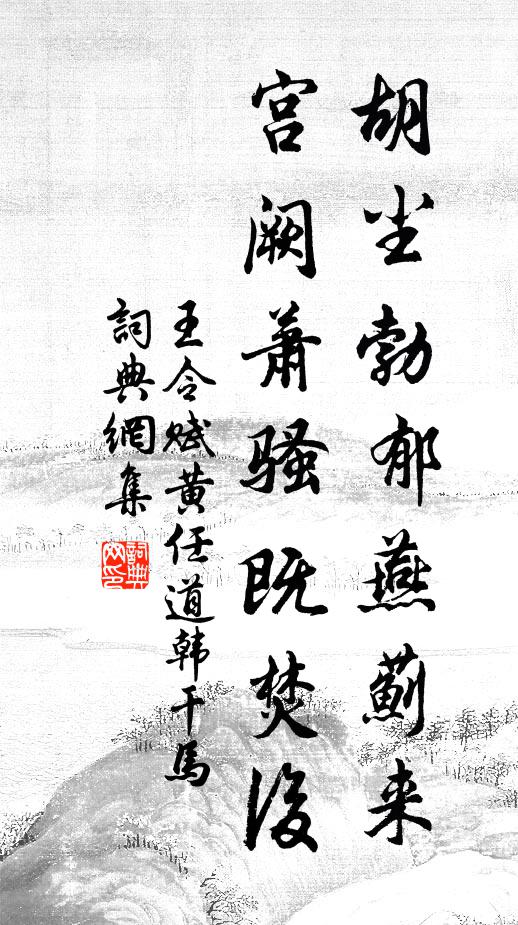 胡尘勃郁燕蓟来
宫阙萧骚既焚后
王令赋黄任道韩干馬
詞典網集
詞典
网印